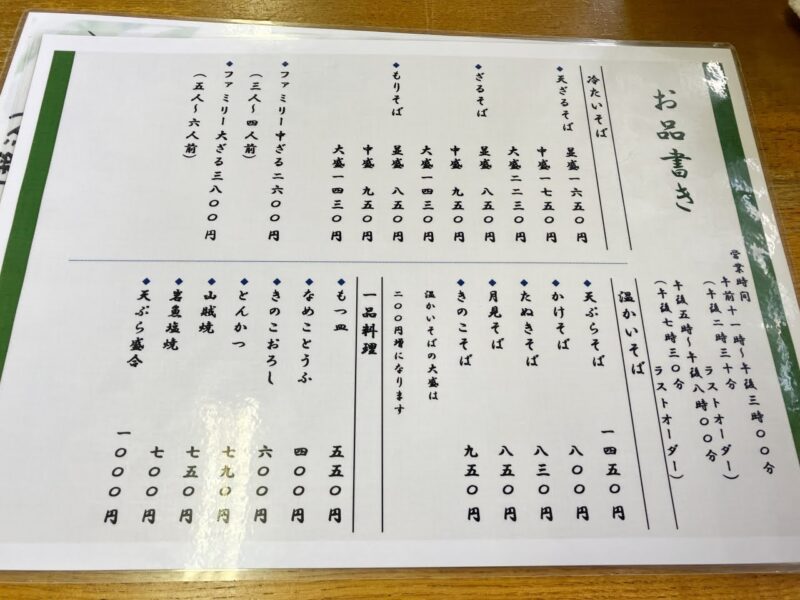 お品書き
営業時間
午前十一時~午後三時〇〇分
(午後二時三十分 ラストオーダー)
午後五時~午後八時〇〇分
(午後七時三〇分 ラストオーダー)
冷たいそば
◆天ざるそば 並盛 一六五〇円
中盛 一七五〇円
大盛 二二三〇円
◆ざるそば 並盛 八五〇円
中盛 九五〇円
大盛 一四三〇円
◆もりそば 並盛 八五〇円
中盛 九五〇円
大盛 一四三〇円
◆ファミリー中ざる 二六〇〇円
(三人~四人前)
◆ファミリー大ざる 三八〇〇円
(五人~六人前)
温かいそば
◆天ぷらそば 一四五〇円
◆かけそば 八〇〇円
◆たぬきそば 八三〇円
◆月見そば 八五〇円
◆きのこそば 九五〇円
温かいそばの大盛は
二〇〇円増になります
一品料理
◆もつ皿 五五〇円
◆なめことうふ 四〇〇円
◆きのこおろし 六〇〇円
◆とんかつ 七九〇円
◆山賊焼 七五〇円
◆岩魚塩焼 七〇〇円
◆天ぷら盛合 一〇〇〇円